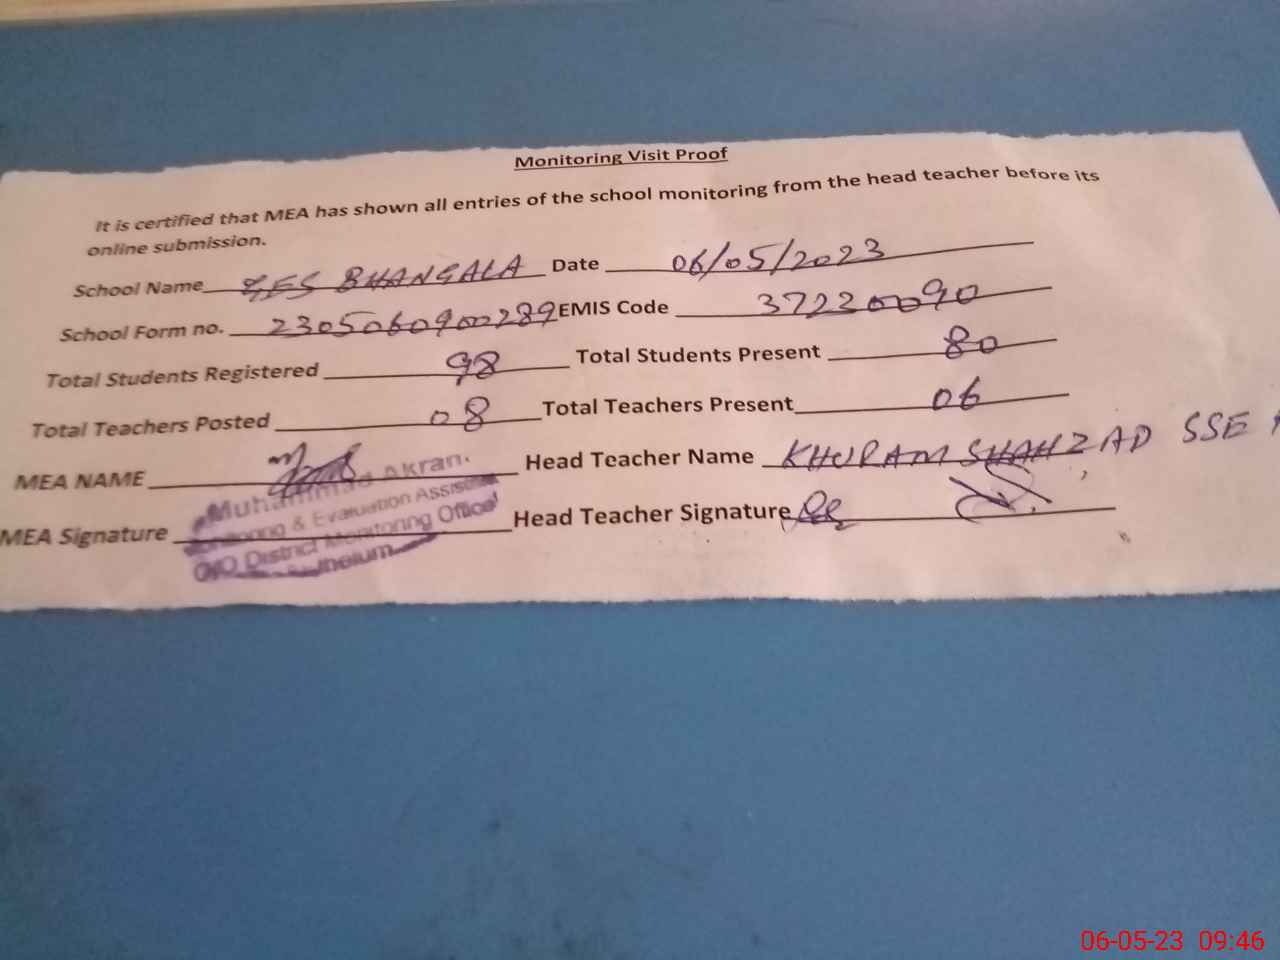 Monitoring Visit Proof
It is certified that MEA has shown all entries of the school monitoring from the head teacher before its
online submission.
School Name GES BHANGALA Date 06/05/2023
School Form no. 2305060900289 EMIS Code 37230090
Total Students Registered 98 Total Students Present 80
Total Teachers Posted 08 Total Teachers Present 06
MEA NAME Head Teacher Name KHURAM SHAHZAD SSE
Muhammad Akram
MEA Signature Head Teacher Signature
Monitoring & Evaluation Assistant
O/O District Monitoring Officer
Jhelum
06-05-23 09:46